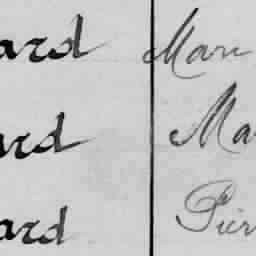 ard Mari
ard Ma
ard Pier